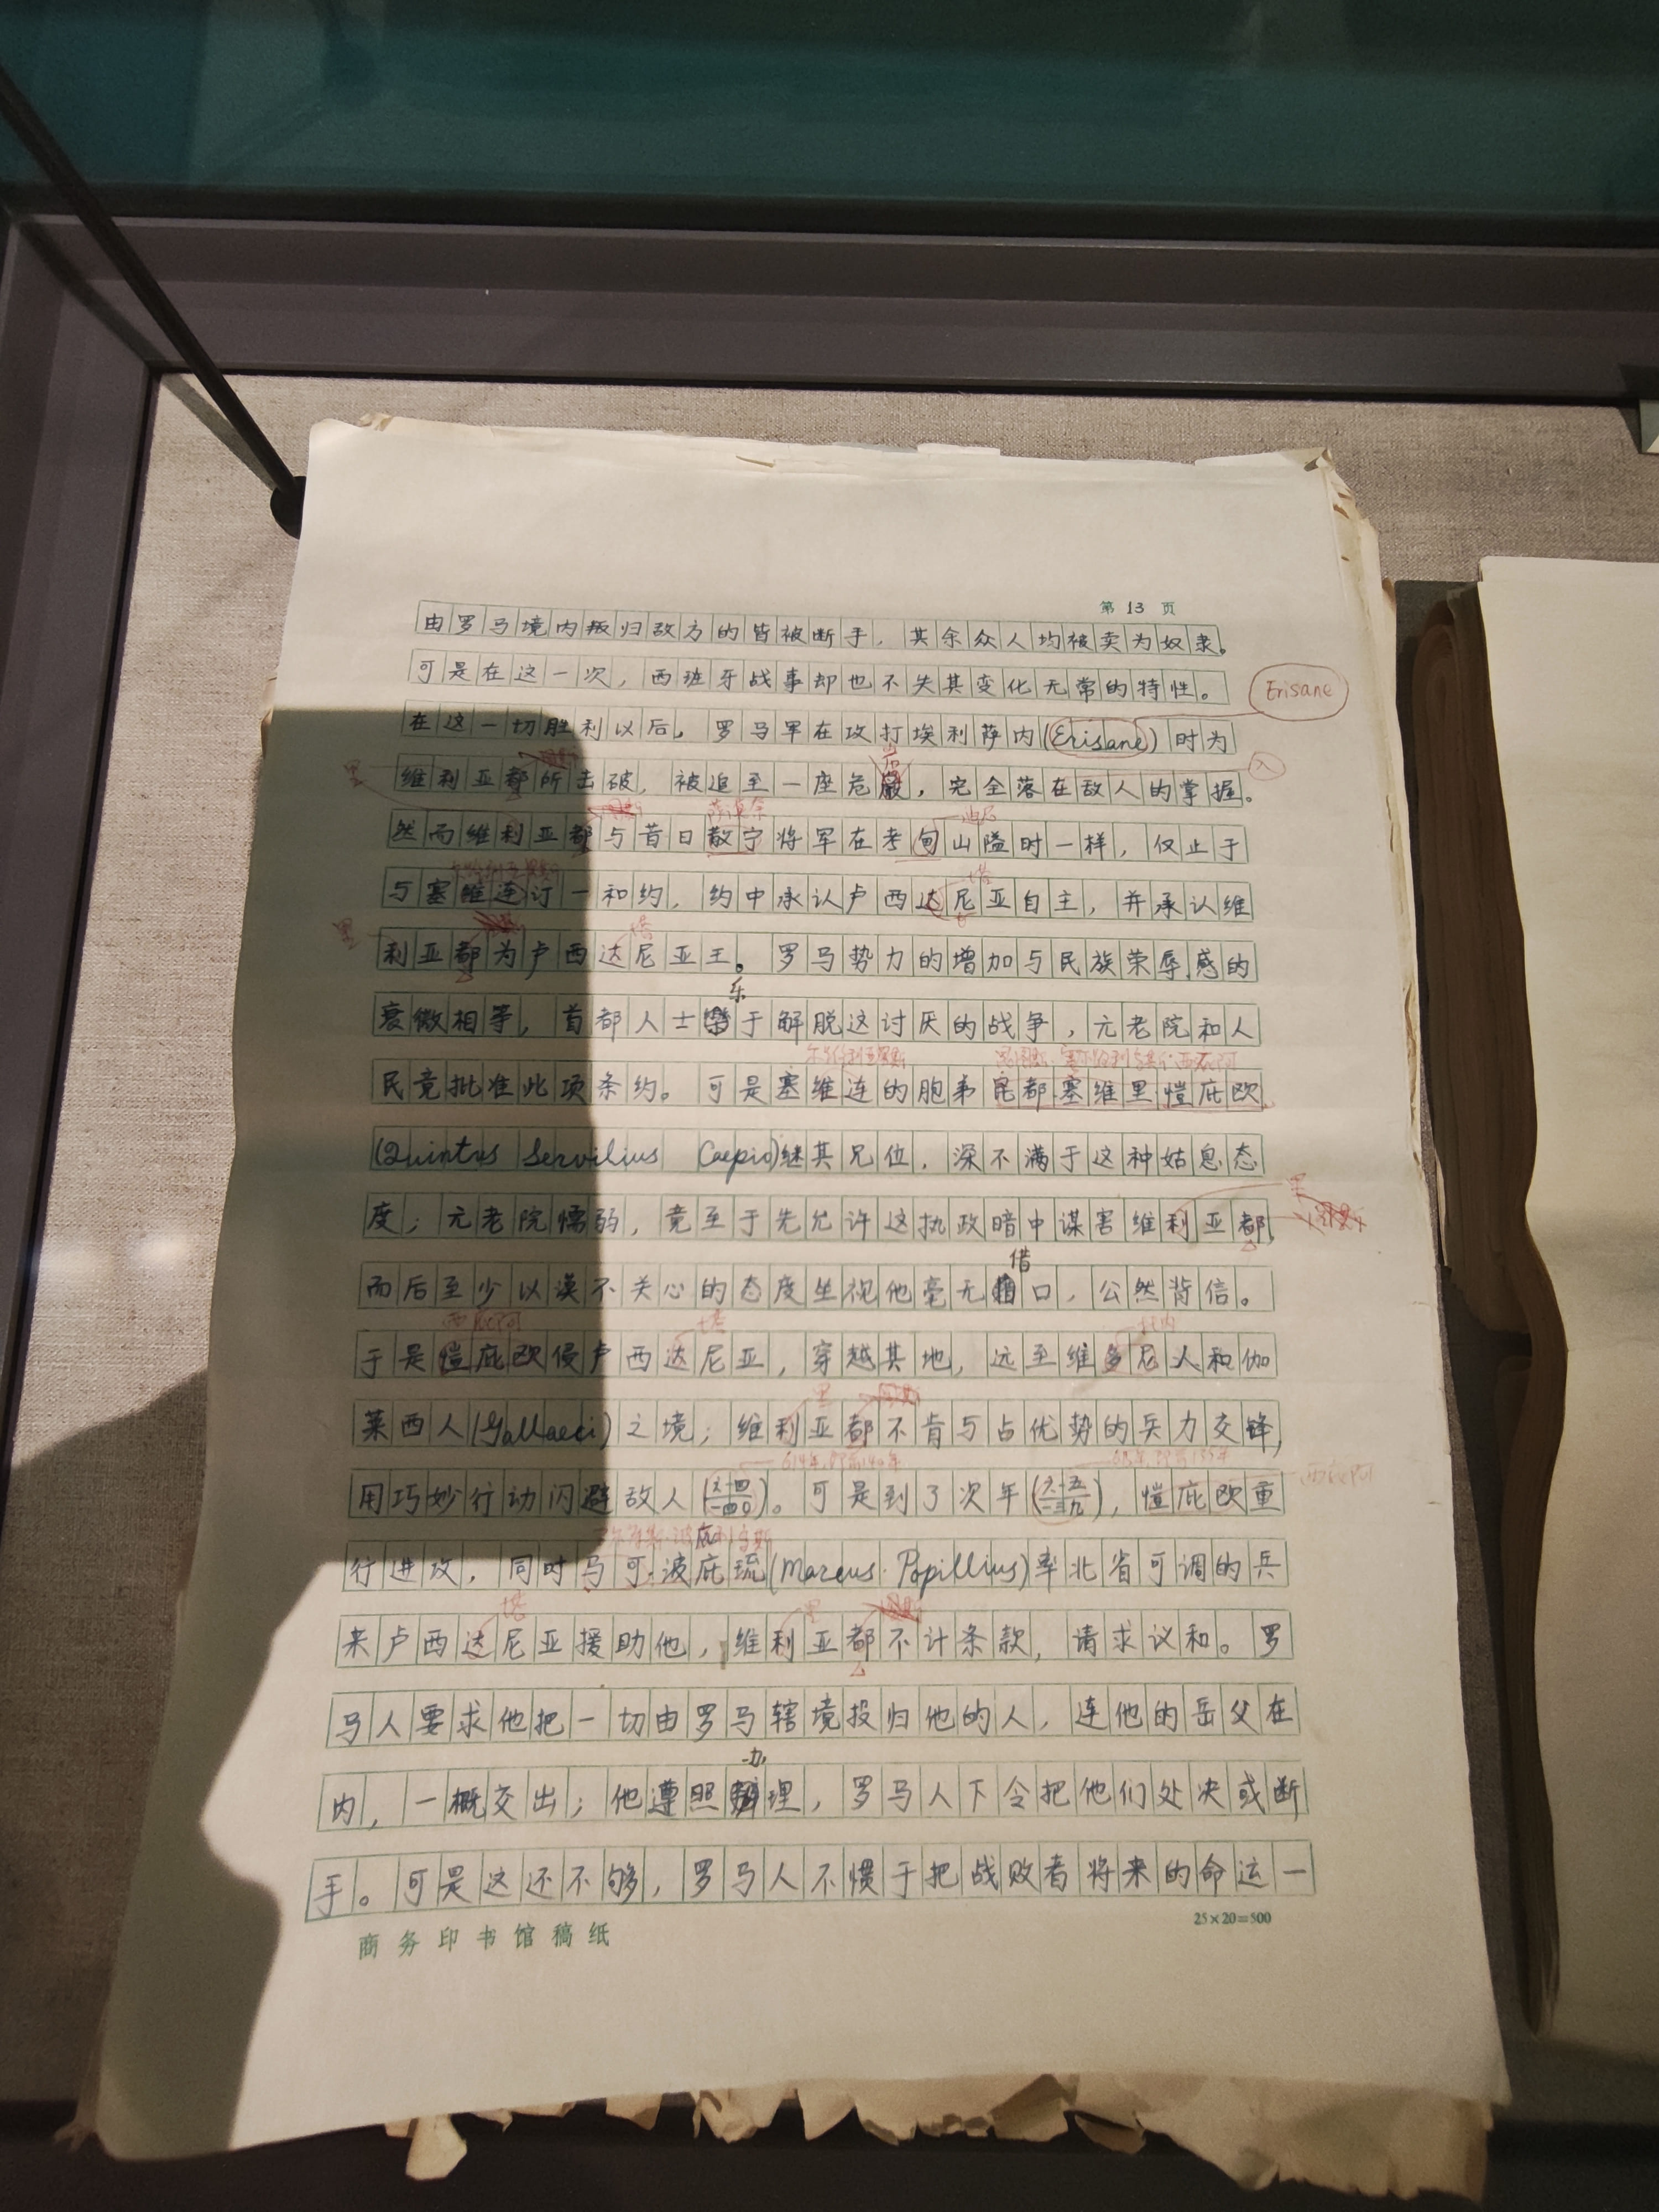 第 13 页
由罗马境内叛归敌方的皆被断手，其余众人均被卖为奴隶。
可是在这一次，西班牙战事却也不失其变化无常的特性。
Erisane
在这一切胜利以后，罗马军在攻打埃利萨内(Erisane)时为
岩
里
维利亚都所击破，被追至一座危巖，完全落在敌人的掌握。
入
然而维利亚都与昔日散宁将军在考甸山隘时一样，仅止于
塔
与塞维连订一和约，约中承认卢西达尼亚自主，并承认维
里
塔
利亚都为卢西达尼亚王。罗马势力的增加与民族荣辱感的
乐
衰微相等，首都人士樂于解脱这讨厌的战争，元老院和人
民竟批准此项条约。可是塞维连的胞弟昆都·塞维里·愷庇欧
(Quintus Servilius Caepio)继其兄位，深不满于这种姑息态
里
度；元老院懦弱，竟至于先允许这执政暗中谋害维利亚都，
借
而后至少以漠不关心的态度坐视他毫无藉口，公然背信。
西庇阿
塔
托内
于是愷庇欧侵卢西达尼亚，穿越其地，远至维多尼人和伽
里
莱西人(Gallaeci)之境；维利亚都不肯与占优势的兵力交锋，
614年，即前140年
615年，即前139年
西庇阿
用巧妙行动闪避敌人(六一四/一四〇)。可是到了次年(六一五/一三九)，愷庇欧重
行进攻，同时马可·波庇琉(Marcus Popillius)率北省可调的兵
塔
里
来卢西达尼亚援助他，维利亚都不计条款，请求议和。罗
马人要求他把一切由罗马辖境投归他的人，连他的岳父在
办
内，一概交出；他遵照辦理，罗马人下令把他们处决或断
手。可是这还不够，罗马人不惯于把战败者将来的命运一
商务印书馆稿纸
25×20=500